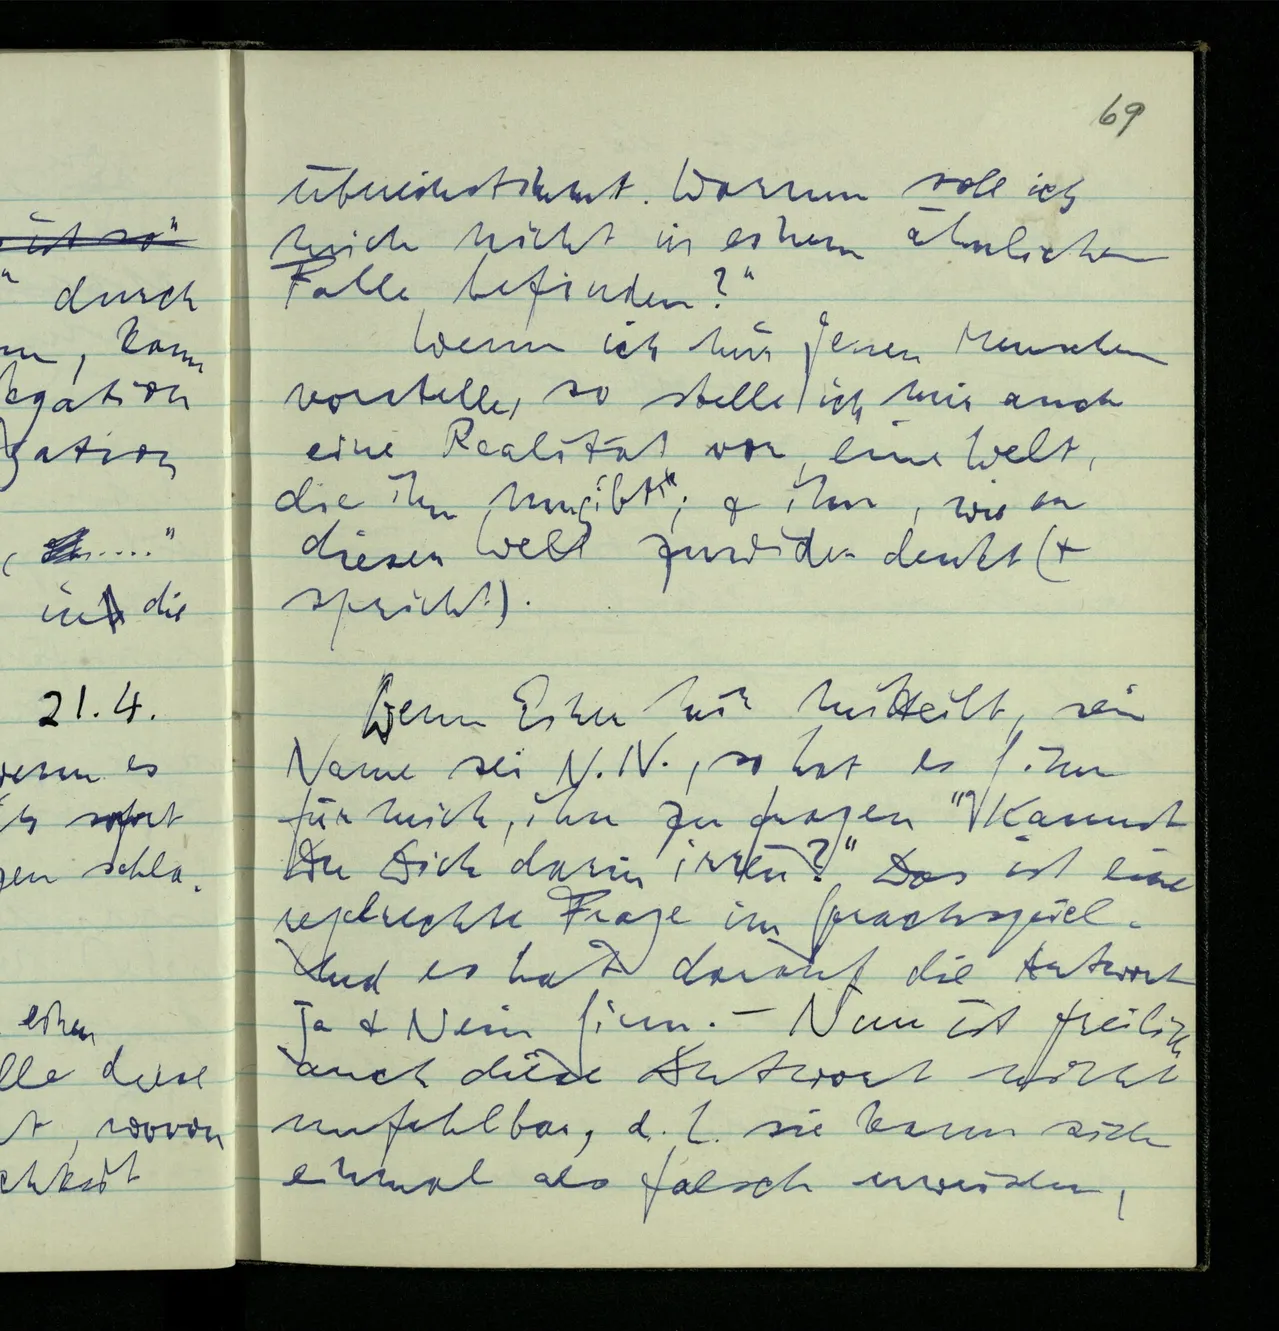 ist so"
" durch
, kann
gation
gation
, ....."
in die
21.4.
wenn es
sofort
gen schla-
einen
lle diese
t, wovon
chkeit
69
übereinstimmt. Warum soll ich
mich nicht in einem ähnlichen
Falle befinden?"
Wenn ich mir jenen Menschen
vorstelle, so stelle ich mir auch
eine Realität vor, eine Welt,
die ihn umgibt; & ihn, wie er
dieser Welt zuwider denkt (&
spricht).
Wenn Einer mir mitteilt, sein
Name sei N.N., so hat es Sinn
für mich, ihn zu fragen "Kannst
Du Dich darin irren?" Das ist eine
regelrechte Frage im Sprachspiel.
Und es hat darauf die Antwort
Ja & Nein Sinn. – Nun ist freilich
auch diese Antwort nicht
unfehlbar, d.h. sie kann sich
einmal als falsch erweisen,